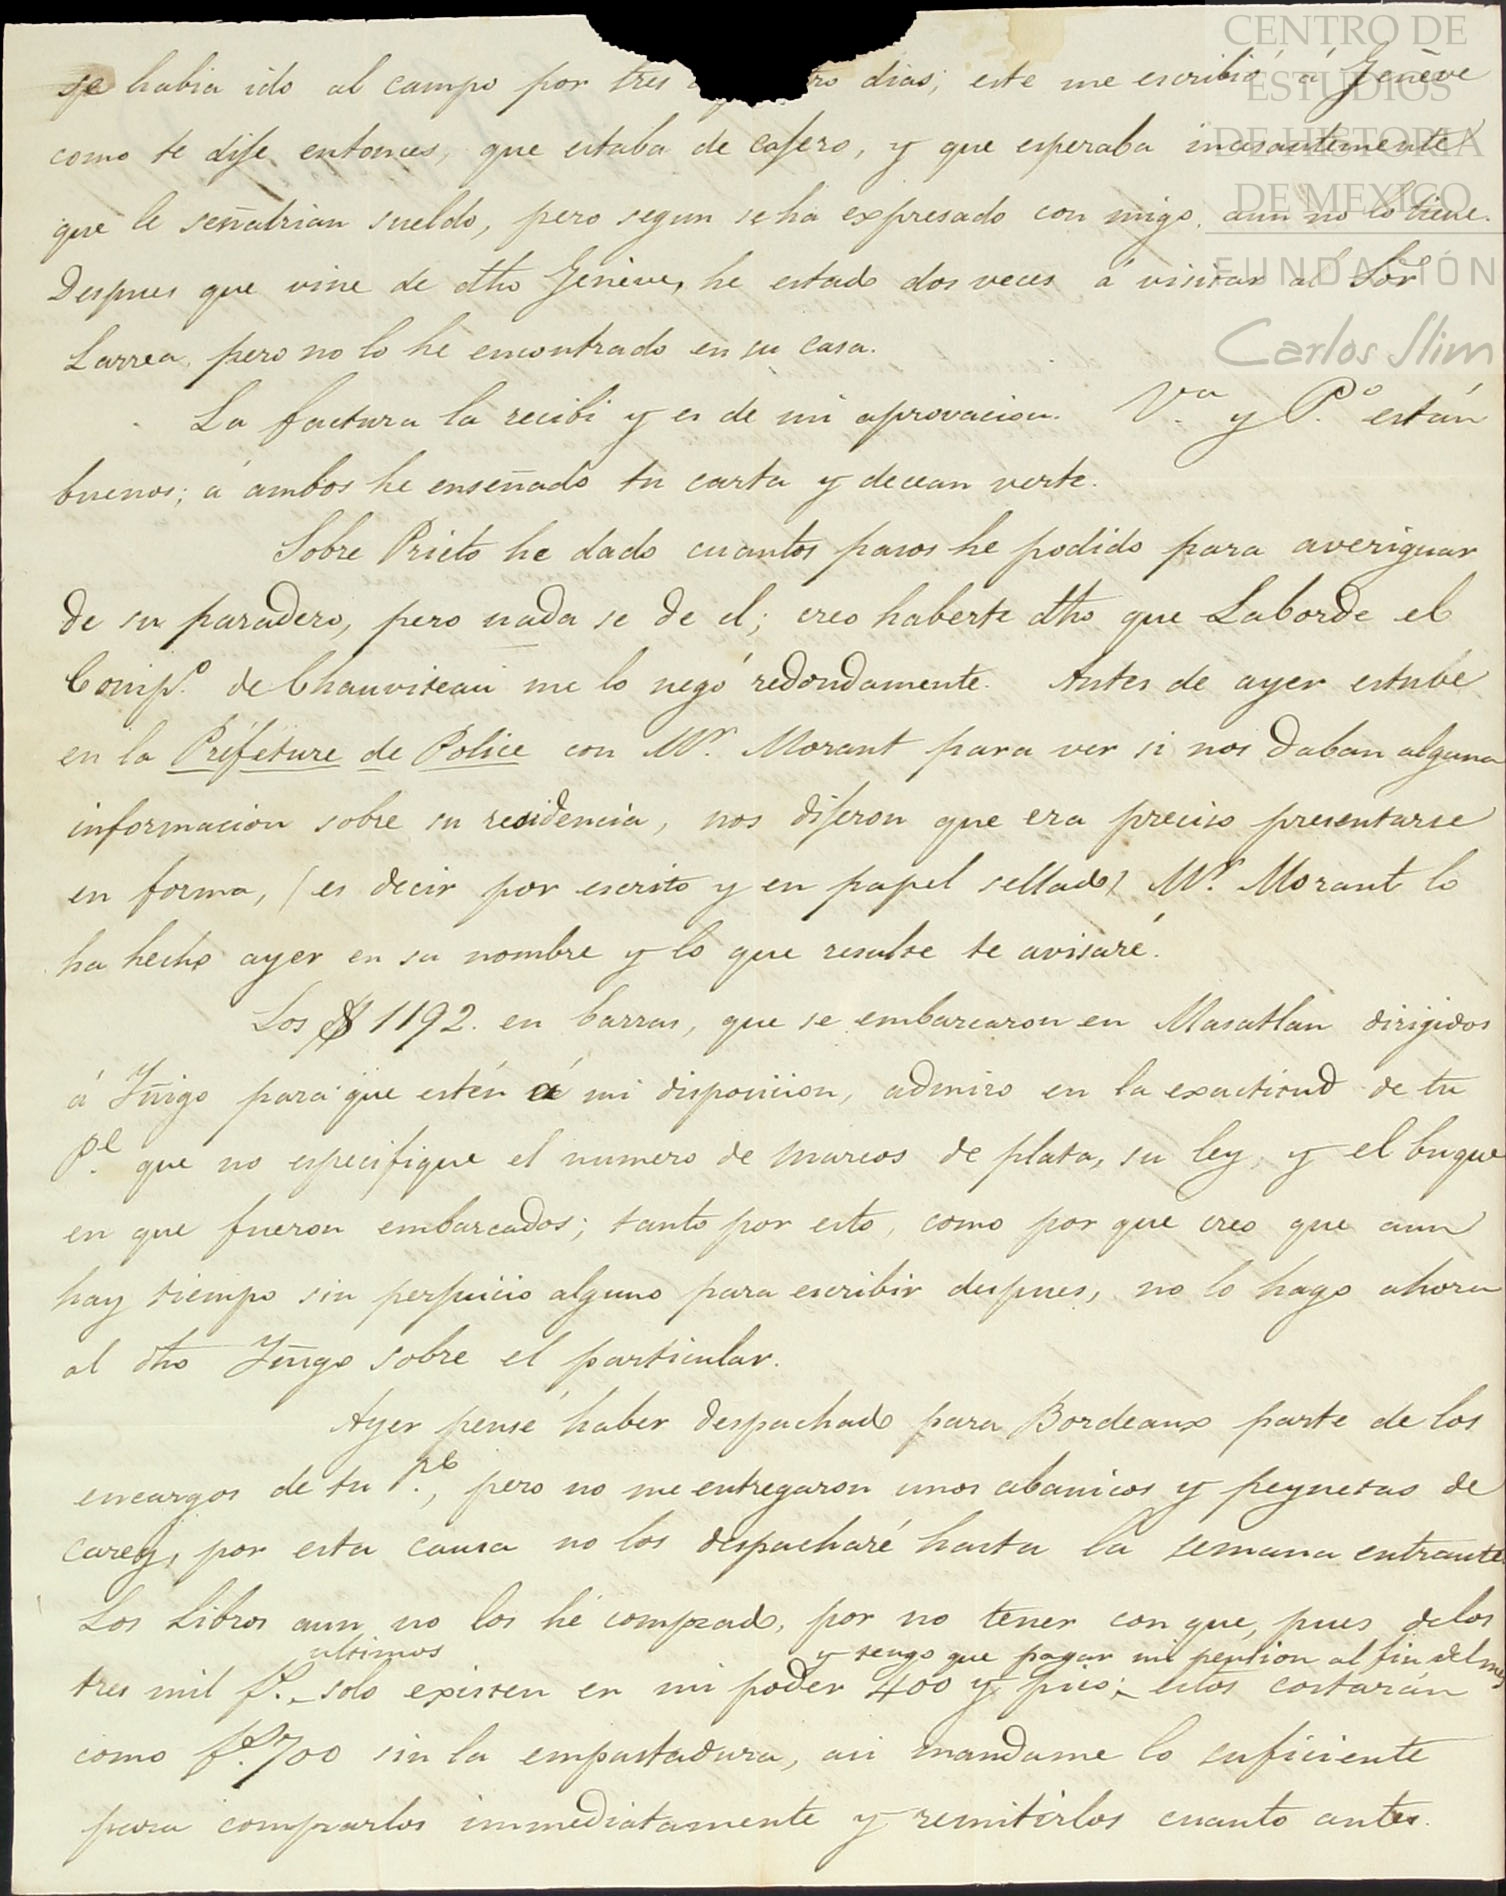 se habia ido al campo por tres tro dias; este me escribió á Genève
como te dije entonces, que estaba de casero, y que esperaba incesantemente
que le señalrian sueldo, pero segun se ha expresado con migo, aun no lo tiene.
Despues que vine de dho Genève, he estado dos veces á visitar al Sõr
Larrea, pero no lo he encontrado en su casa.
La factura la recibi y es de mi aprovacion. V.a y P.o están
buenos; á ambos he enseñado tu carta y decean verte.
Sobre Prieto he dado cuantos pasos he podido para averiguar
de su paradero, pero nada se de el; creo haberte dho que Laborde el
Comp.o de Chauviteau me lo negó redondamente. Antes de ayer estube
en la Préfeture de Police con Mr. Morant para ver si nos daban alguna
informacion sobre su residencia, nos dijeron que era preciso presentarse
en forma, (es decir por escrito y en papel sellado) Mr. Morant lo
ha hecho ayer en su nombre y lo que resulte te avisaré.
Los $ 1192. en barras, que se embarcaron en Masatlan dirijidos
á Yñigo para que estén á mi disposicion, admiro en la exactitud de tu
P.e que no especifique el numero de marcos de plata, su ley, y el buque
en que fueron embarcados; tanto por esto, como por que creo que aun
hay tiempo sin perjuicio alguno para escribir despues, no lo hago ahora
al dho Yñigo sobre el particular.
Ayer pensé haber despachado para Bordeaux parte de los
encargos de tu P.e, pero no me entregaron unos abanicos y peynetas de
carey, por esta causa no los despacharé hasta la semana entrante.
Los Libros aun no los hé comprado, por no tener con que, pues de los
ultimos y tengo que pagar mi pention al fin del mes
tres mil fs. solo existen en mi poder 400 y pico; estos costarán
como fs. 700 sin la empastadura, asi mandame lo suficiente
para comprarlos immediatamente y remitirlos cuanto antes.
CENTRO DE
ESTUDIOS
DE HISTORIA
DE MEXICO
FUNDACIÓN
Carlos Slim